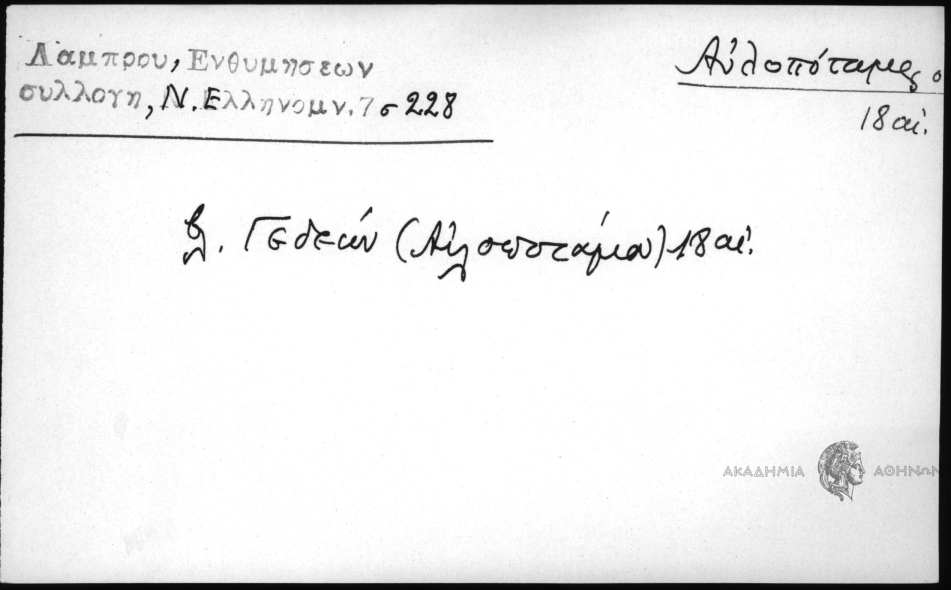 Λαμπρου, Ενθυμησεων
συλλογη, Ν. Ελληνομν. 7 σ 228
Αὐλοπόταμος ο
18 αἰ.
βλ. Γεδεών (Αὐλοποτάμου) 18 αἰ.
ΑΚΑΔΗΜΙΑ ΑΘΗΝΩΝ